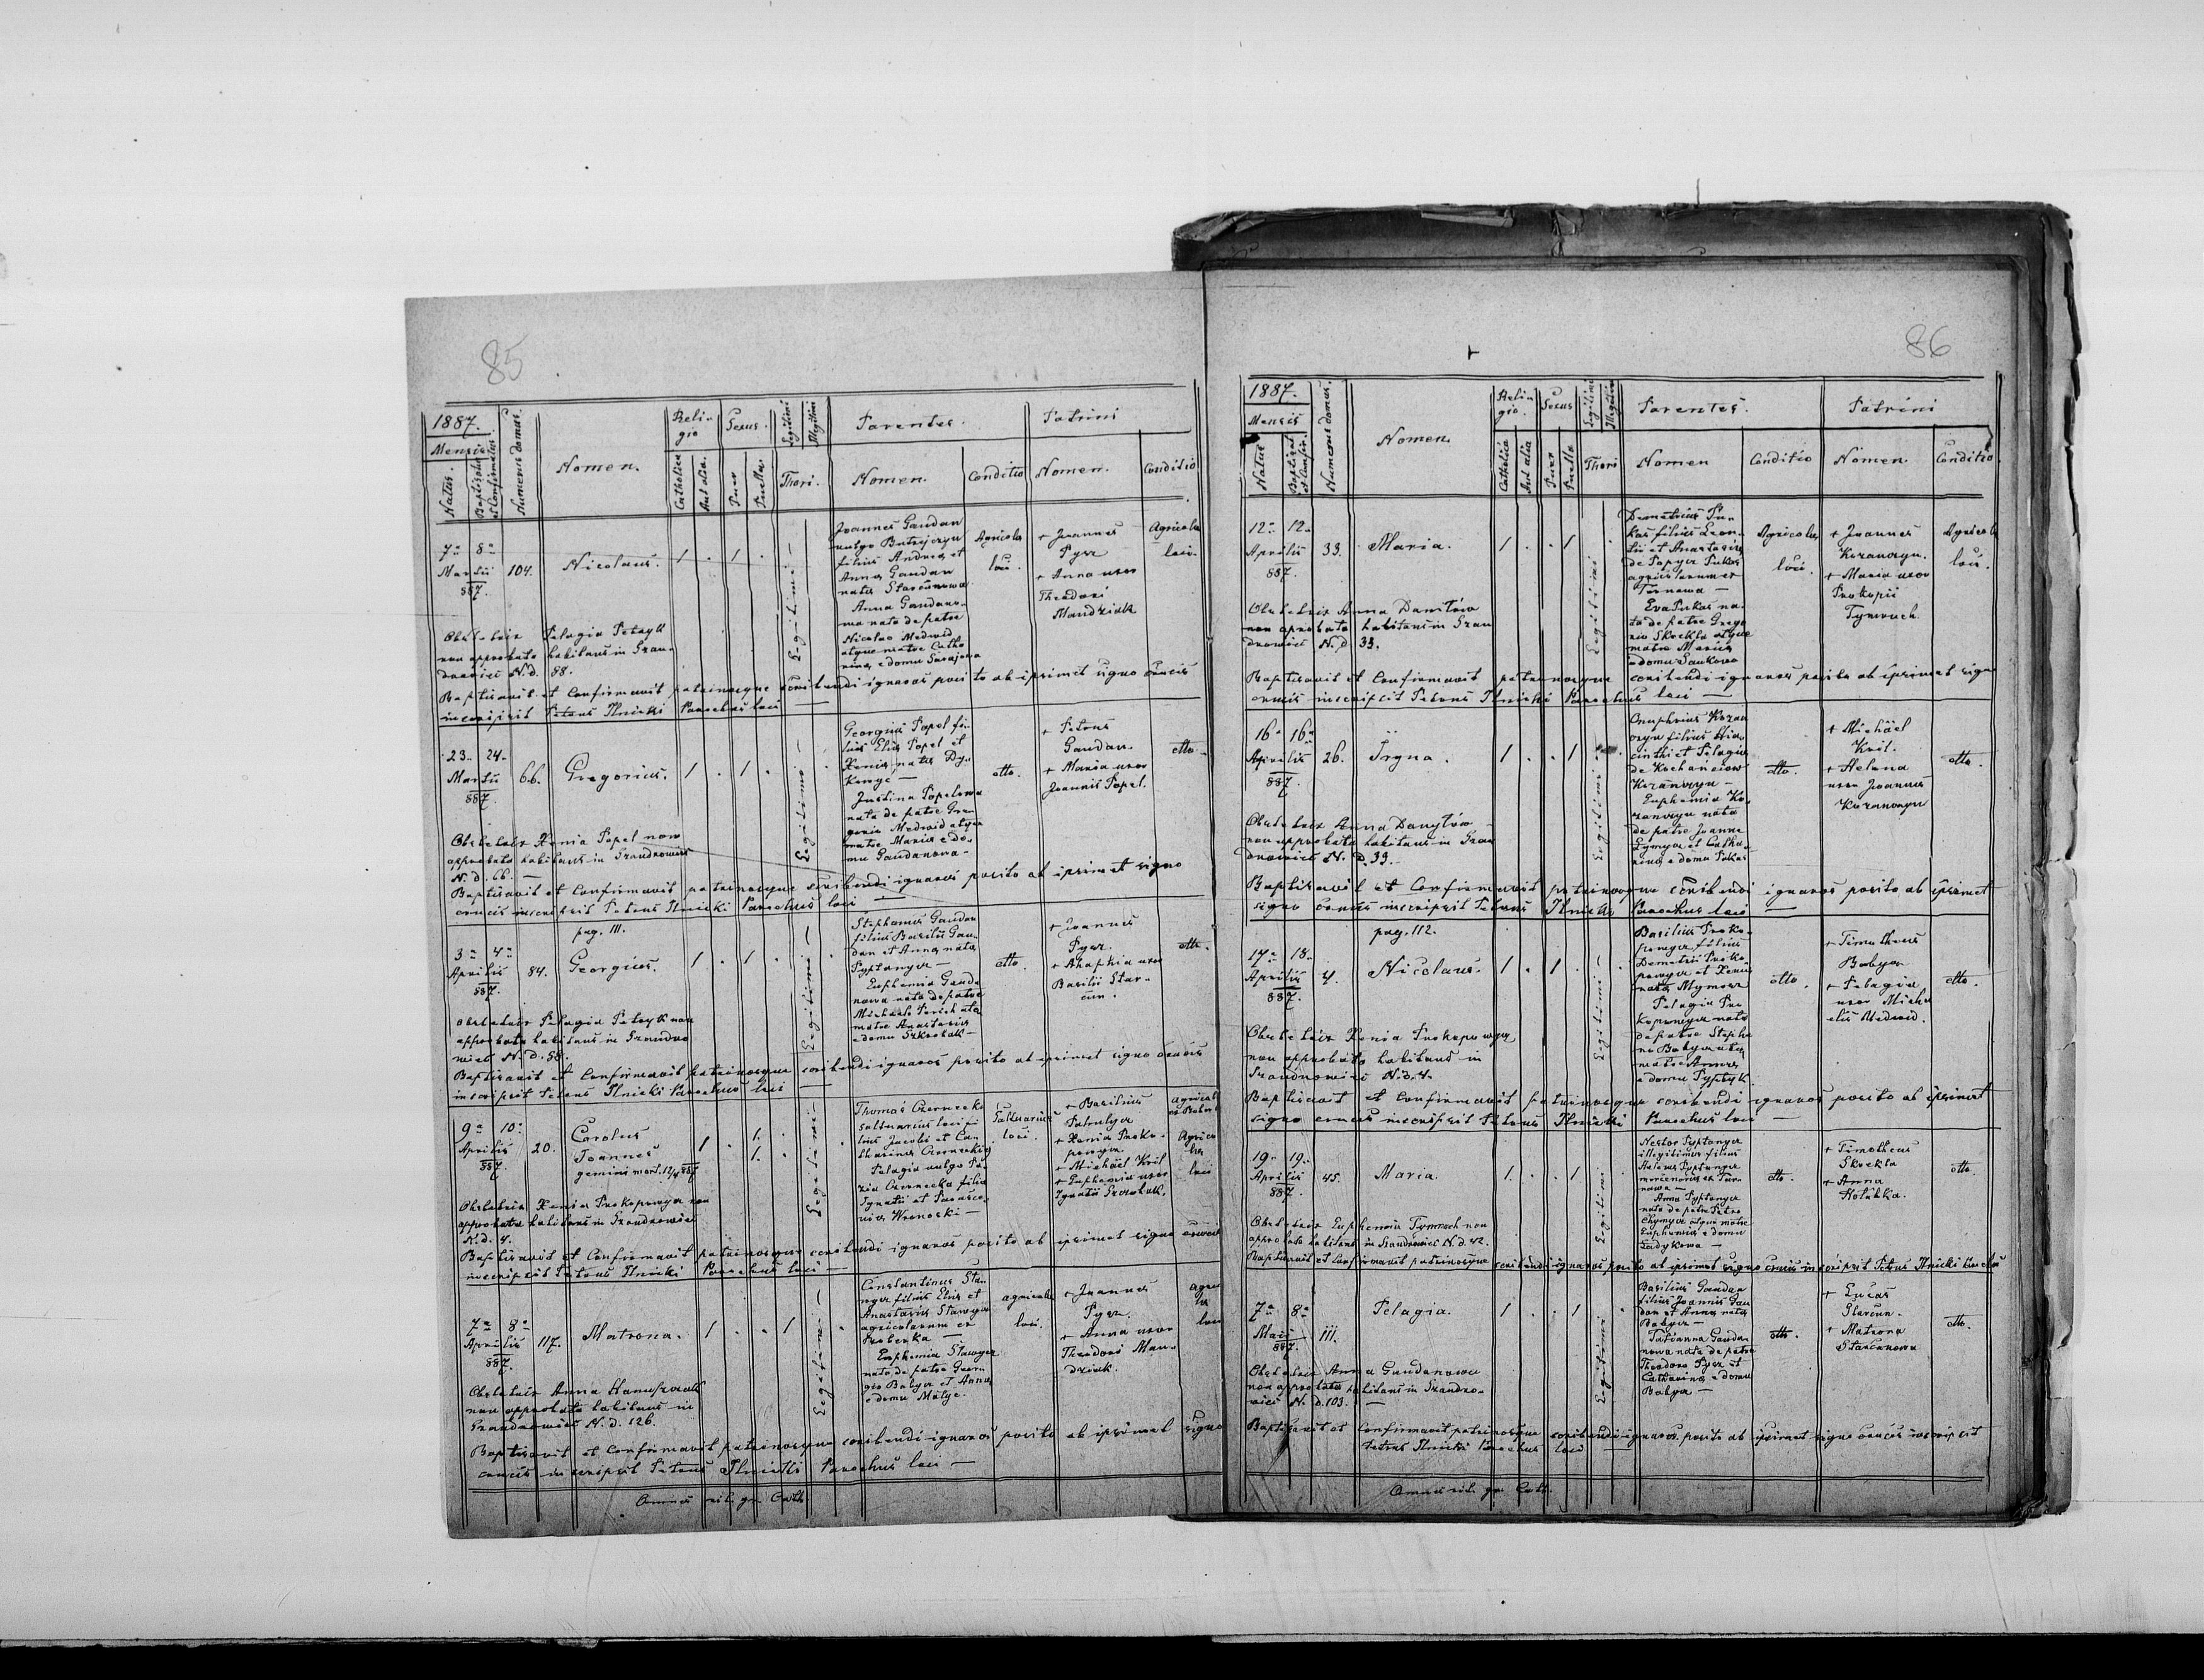 85
1887.
Mensis
Natus.
Baptisatus et Confirmatus.
Numerus domus.
Nomen.
Religio
Catholica
Aut alia.
Sexus.
Puer
Puella
Legitimi
Illegitimi
Thori.
Parentes.
Nomen.
Conditio
Patrini
Nomen.
Conditio
7a 8a
Martii 104.
887.
Nicolaus.
1 . 1 .
Legitimi
Joannes Gaudan
vulgo
filius Andreae et
Anna Gaudan
nata
Anna Gaudano-
wa nata de patre
Nicolao Medwid
atque matre Catha
rina, e domu
Agricolae
loci.
+ Joannes
Pysz
+ Anna uxor
Theodori
Mandziak
Agricolae
loci.
Obstetrix Pelagia Petryk
non approbata habitans in Szan-
drowiec N.d. 88.
Baptisavit et Confirmavit patrinosque scribendi ignaros posito ab ipsimet signo crucis
inscripsit Petrus Ilnicki Parochus loci
23. 24.
Martii 66.
887.
Gregorius.
1 . 1 .
Legitimi
Georgius Popel fi-
lius Eliae Popel et
Xenia nata
Justina Popelowa
nata de patre Gre-
gorio Medwid atque
matre Maria e do-
mu Gaudanowa
otto.
+ Petrus
Gaudan.
+ Maria uxor
Joannis Popel.
otto
Obstetrix Xenia Popel non
approbata habitans in Szandrowiec
N. d. 66.
Baptisavit et Confirmavit patrinosque scribendi ignaros posito ab ipsimet signo
crucis inscripsit Petrus Ilnicki Parochus loci
pag. 111.
3a 4a
Aprilis 84.
887.
Georgius.
1 . 1 .
Legitimi
Stephanus Gaudan
filius Basilii Gau-
dan et Anna nata
Pyptanycz
Euphemia Gauda-
nowa nata de patre
Michaele
matre Anastasia
e domu
otto
+ Joannes
Pysz.
+ Ahaphia uxor
Basilii Star-
cun.
otto.
Obstetrix Pelagia Petryk non
approbata habitans in Szandro
wiec N. d. 88.
Baptisavit et Confirmavit patrinosque scribendi ignaros posito ab ipsimet signo crucis
inscripsit Petrus Ilnicki Parochus loci
9a 10a
Aprilis 20.
887.
Carolus
Joannes
gemini mort. 12/4 887
1 . 1. .
1.
Legitimi
Thomas Czernecki
saltuarius loci fi
lius Jacobi et Ca-
tharina Czernecki
Pelagia vulgo
Czernecka filia
Ignatii et Parasce-
via Wronocki
Saltuarius
loci.
+ Basilius
+ Xenia Proko-
powycz
+ Michael Kril
+ Euphemia uxor
Ignatii
Agrico
lae
loci
Obstetrix Xenia Prokopowycz non
approbata habitans in Szandrowiec
N. d. 4.
Baptisavit et Confirmavit patrinosque scribendi ignaros posito ab ipsimet signo crucis
inscripsit Petrus Ilnicki Parochus loci
7a 8a
Aprilis 117.
887.
Matrona.
1 . . 1
Legitimi
Constantinus Sta-
wycz filius Eliae et
Anastasia Stawycz
agricolarum ex
Euphemia Stawycz
nata de patre Geor-
gio Babycz et Anna
e domu
agricolae
loci.
+ Joannes
Pysz.
+ Anna uxor
Theodori Man-
dziak.
agrico
lae
loci
Obstetrix Anna
non approbata habitans in
Szandrowiec N. d. 126.
Baptisavit et Confirmavit patrinosque scribendi ignaros posito ab ipsimet signo
crucis inscripsit Petrus Ilnicki Parochus loci
Omnes rit. gr. Cath.
86
1887.
Mensis
Natus
Baptisat et Confir.
Numerus domus.
Nomen.
Religio.
Catholica
Aut alia
Sexus
Puer
Puella
Legitimi
Illegitimi
Thori
Parentes.
Nomen
Conditio
Patrini
Nomen
Conditio
12a 12a
Aprilis 33.
887.
Maria.
1 . . 1
Legitimi
Demetrius Pu-
kas filius Leon-
tii et Anastasia
de Pukas
agricolarum ex
Tarnawa
Eva Pukas na-
ta de patre Grego
rio Skrekla atque
matre Maria
e domu
Agricolae
loci.
+ Joannes
+ Maria uxor
Prokopii
Tymruch
Agricola
loci.
Obstetrix Anna
non aprobata habitans in Szan
drowiec N. d. 33.
Baptisavit et Confirmavit patrinosque scribendi ignaros posito ab ipsimet signo
crucis inscripsit Petrus Ilnicki Parochus loci
16a 16a
Aprilis 26.
887.
Iryna.
1 . . 1
Legitimi
Onuphrius
filius Hia-
cinthi et Pelagia
de
Euphemia
nata
de patre Joanne
et Catha
rina e domu Pukas
otto.
+ Michael
Kril.
+ Helena
uxor Joannis
otto.
Obstetrix Anna
non approbata habitans in Szan
drowiec N. d. 33.
Baptisavit et Confirmavit patrinosque scribendi ignaros posito ab ipsimet
signo crucis inscripsit Petrus Ilnicki Parochus loci
pag. 112.
17a 18a
Aprilis 4.
887.
Nicolaus.
1 . 1 .
Legitimi
Basilius Proko-
powycz filius
Demetrii Proko-
powycz et Xenia
nata
Pelagia Pro-
kopowycz nata
de patre Stepha
no Babycz atque
matre Anna
e domu
otto
+ Timotheus
Babycz
+ Pelagia
uxor Micha
elis Medwid.
otto.
Obstetrix Xenia Prokopowycz
non approbata habitans in
Szandrowiec N. d. 4.
Baptisavit et Confirmavit patrinosque scribendi ignaros posito ab ipsimet
signo crucis inscripsit Petrus Ilnicki Parochus loci
19a 19a
Aprilis 45.
887.
Maria.
1. . . 1
Legitimi
Nestor Pyptanycz
illegitimus filius
Pyptanycz
ex Tar-
nawa
Anna Pyptanycz
nata de patre Petro
atque matre
Euphemia e domu
otto.
+ Timotheus
Skrekla
+ Anna
otto.
Obstetrix Euphemia Tymruch non
approbata habitans in Szandrowiec N. d. 42.
Baptisavit et Confirmavit patrinosque scribendi ignaros posito ab ipsimet signo crucis inscripsit Petrus Ilnicki
7a 8a
Maii 111.
887.
Pelagia.
1 . . 1
Legitimi
Basilius Gaudan
filius Joannis Gau
dan et Anna nata
Babycz
Tatianna Gauda-
nowa nata de patre
Theodoro Pysz et
Catharina e domu
Babycz
otto.
+ Lucas
Starcun.
+ Matrona
Starcunowa
otto.
Obstetrix Anna Gaudanowa
non approbata habitans in Szandro-
wiec N. d. 103.
Baptisavit et Confirmavit patrinosque scribendi ignaros posito ab ipsimet signo crucis inscripsit
Petrus Ilnicki Parochus loci
Omnes rit. gr. Cath.